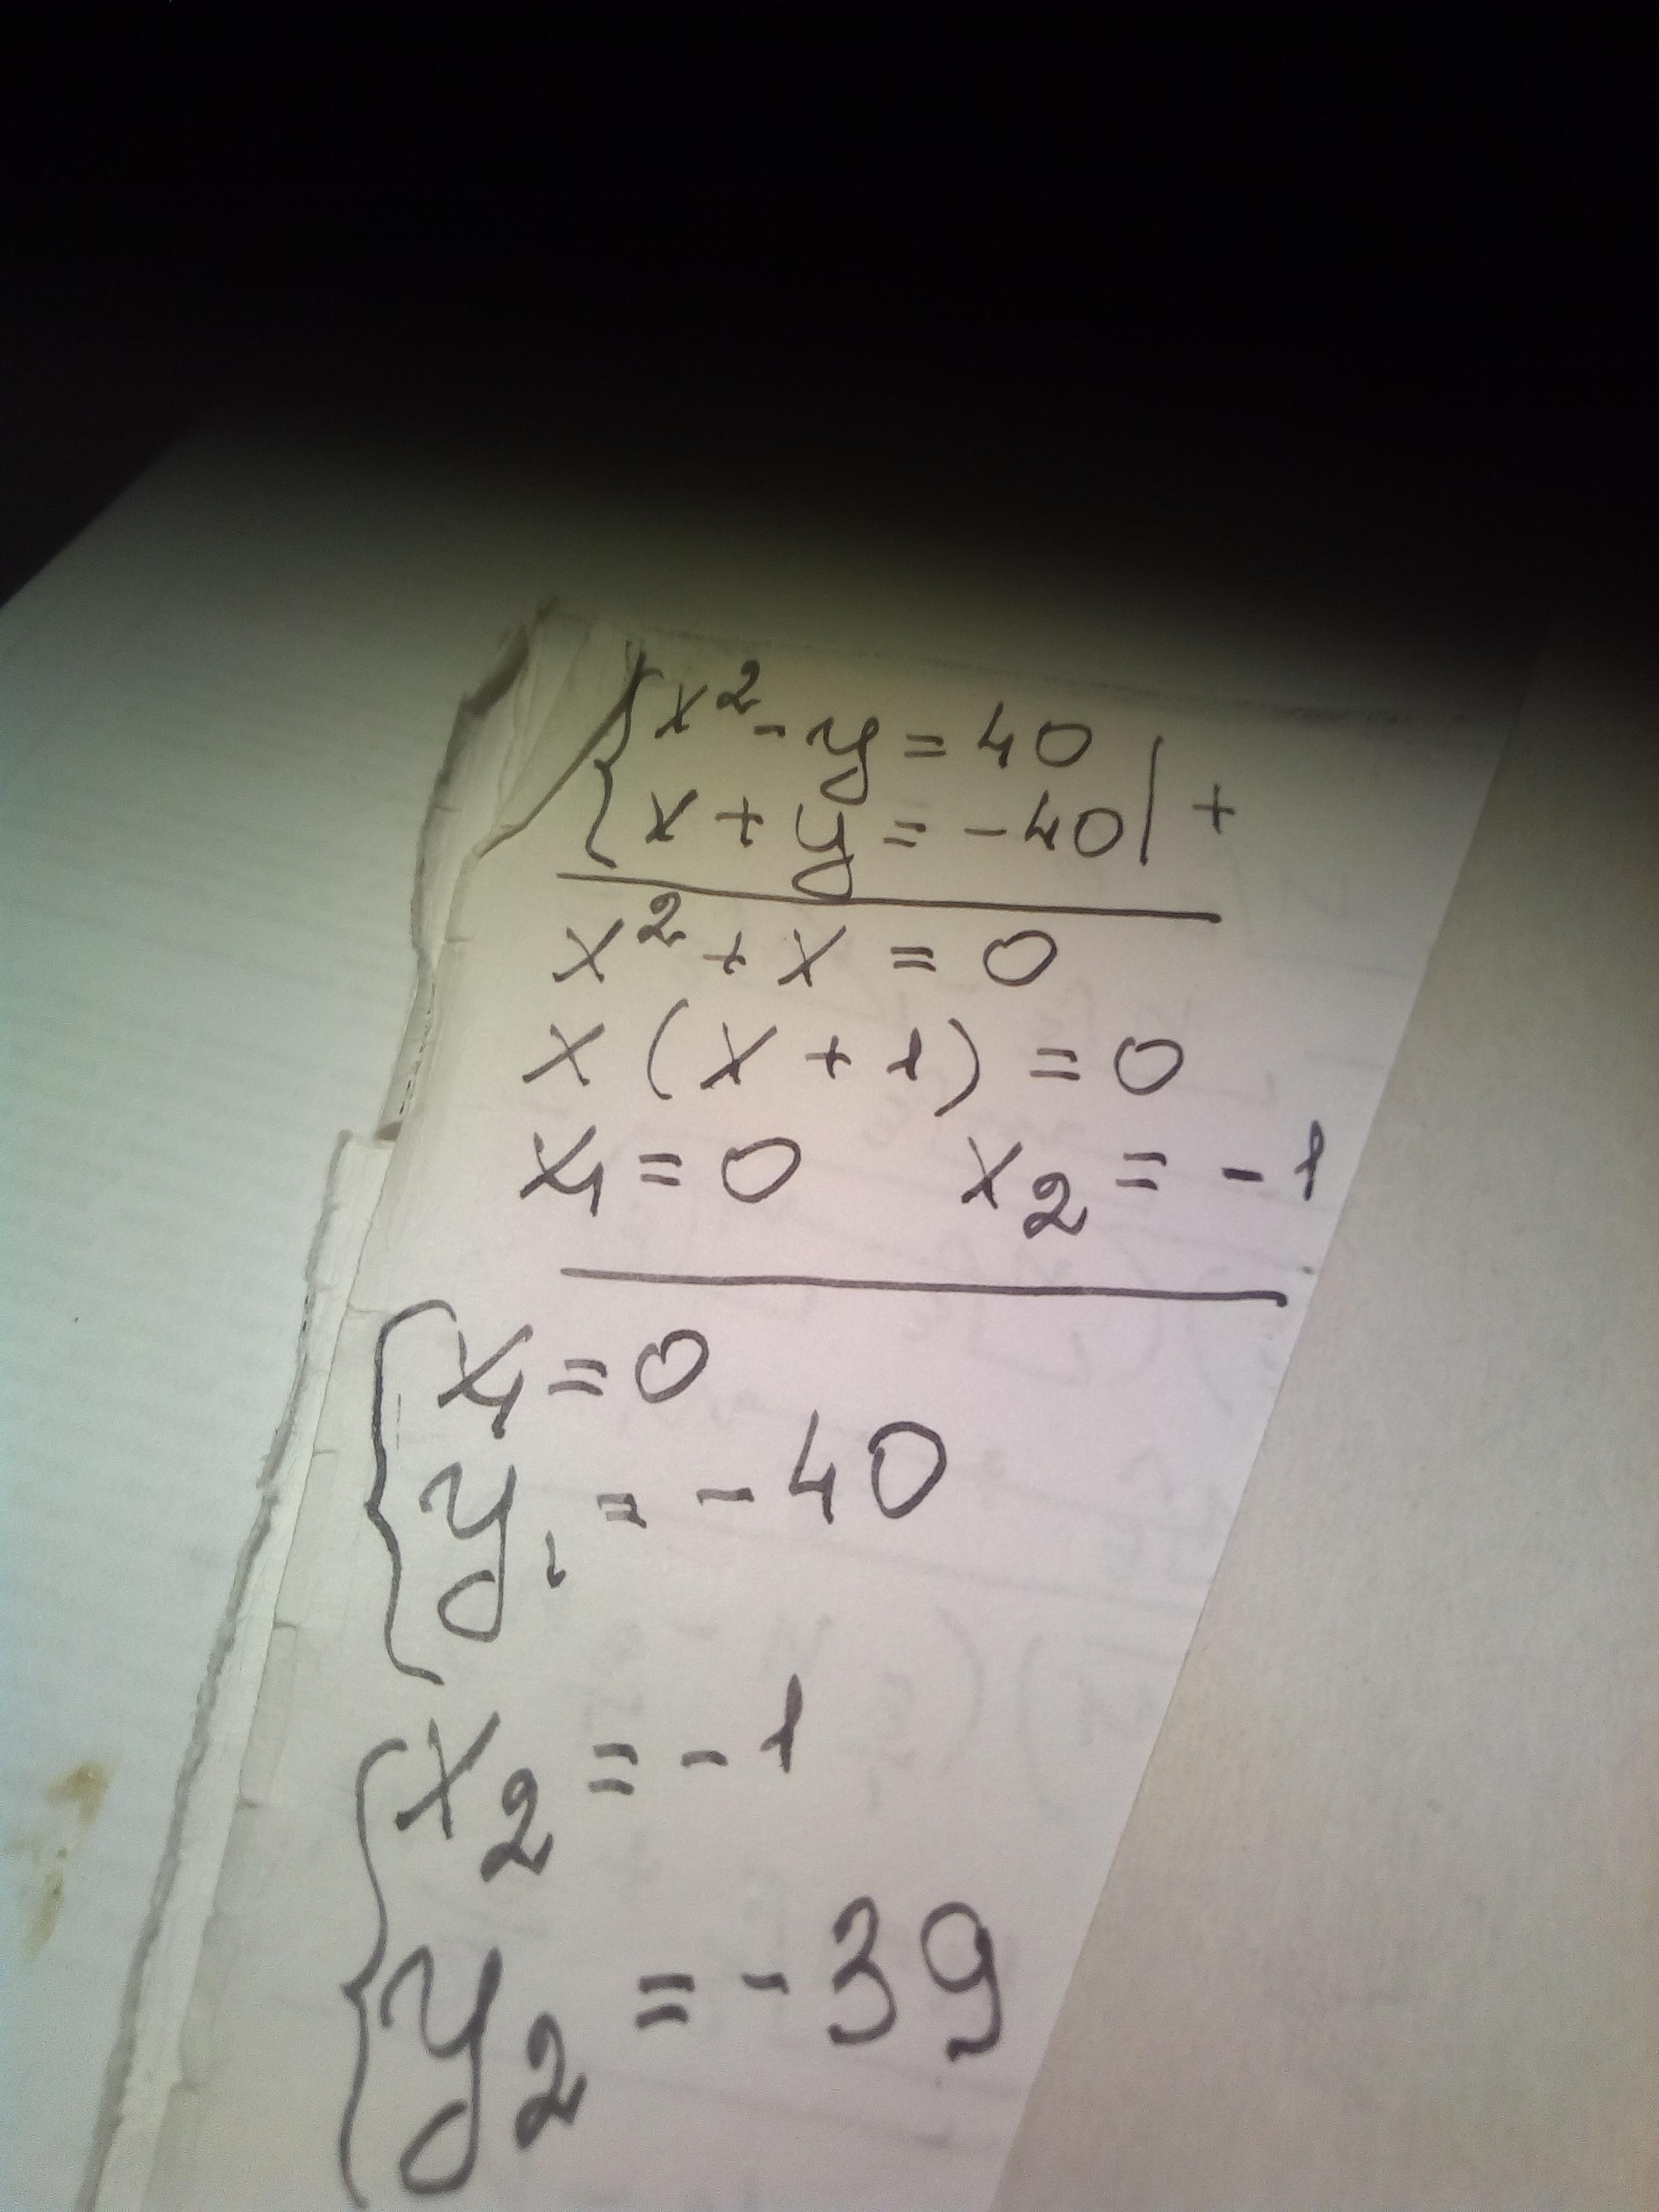 {x² - y = 40
{x + y = -40 | +
x² + x = 0
x (x + 1) = 0
x₁ = 0   x₂ = -1
{x₁ = 0
{y₁ = -40
{x₂ = -1
{y₂ = -39